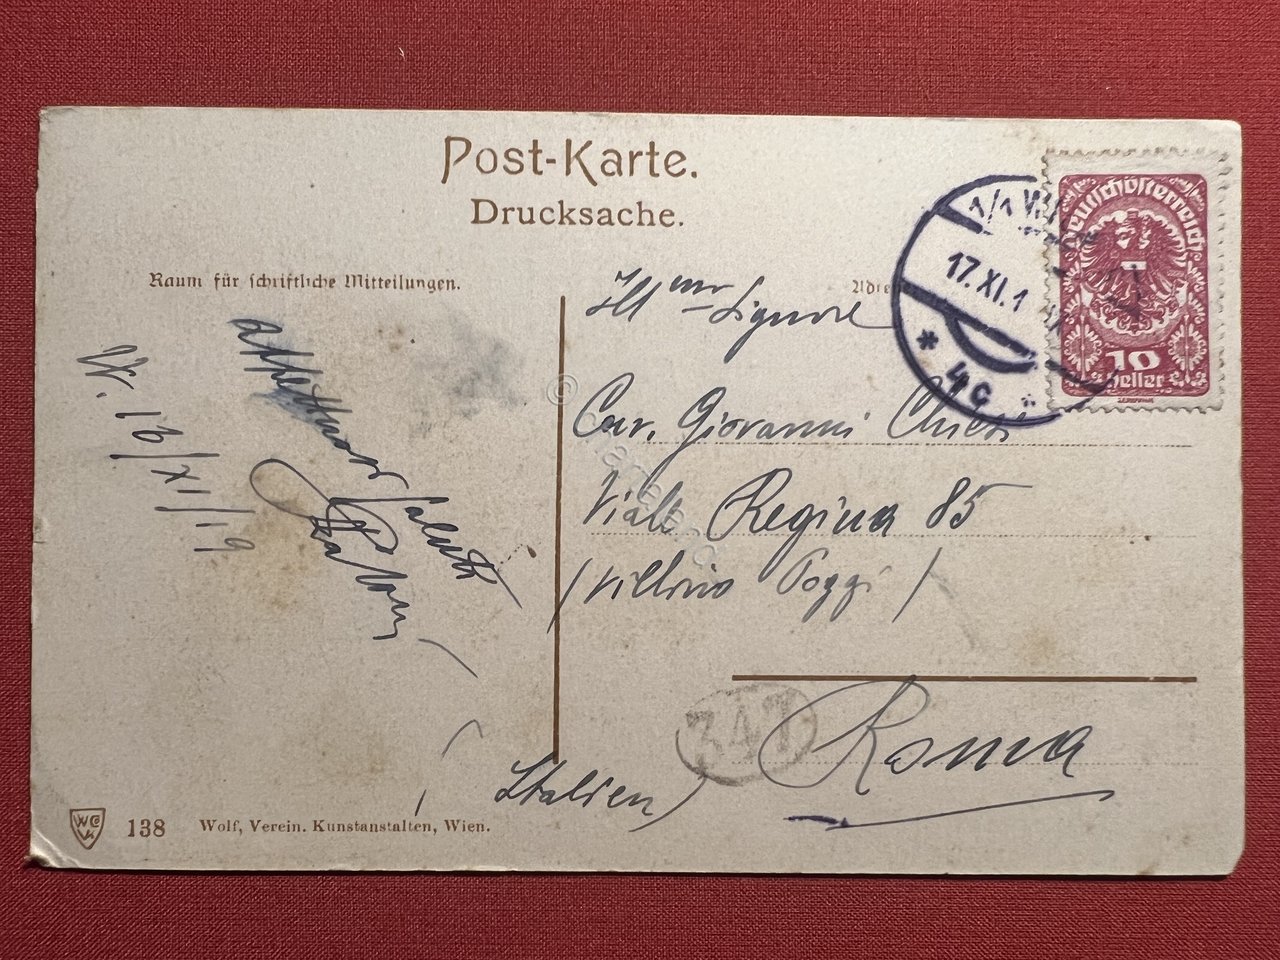 Post-Karte.
Drucksache.
Raum für schriftliche Mitteilungen.
1/1 WI
17.XI.1
* 4c *
Deutschösterreich
10
Heller
W. 16/XI/19
affettuosi saluti
Ill mo Signore
Cav. Giovanni
Viale Regina 85
(Villino Poggi)
Roma
(Italien)
347
WCo
138 Wolf, Verein. Kunstanstalten, Wien.
© delcampe